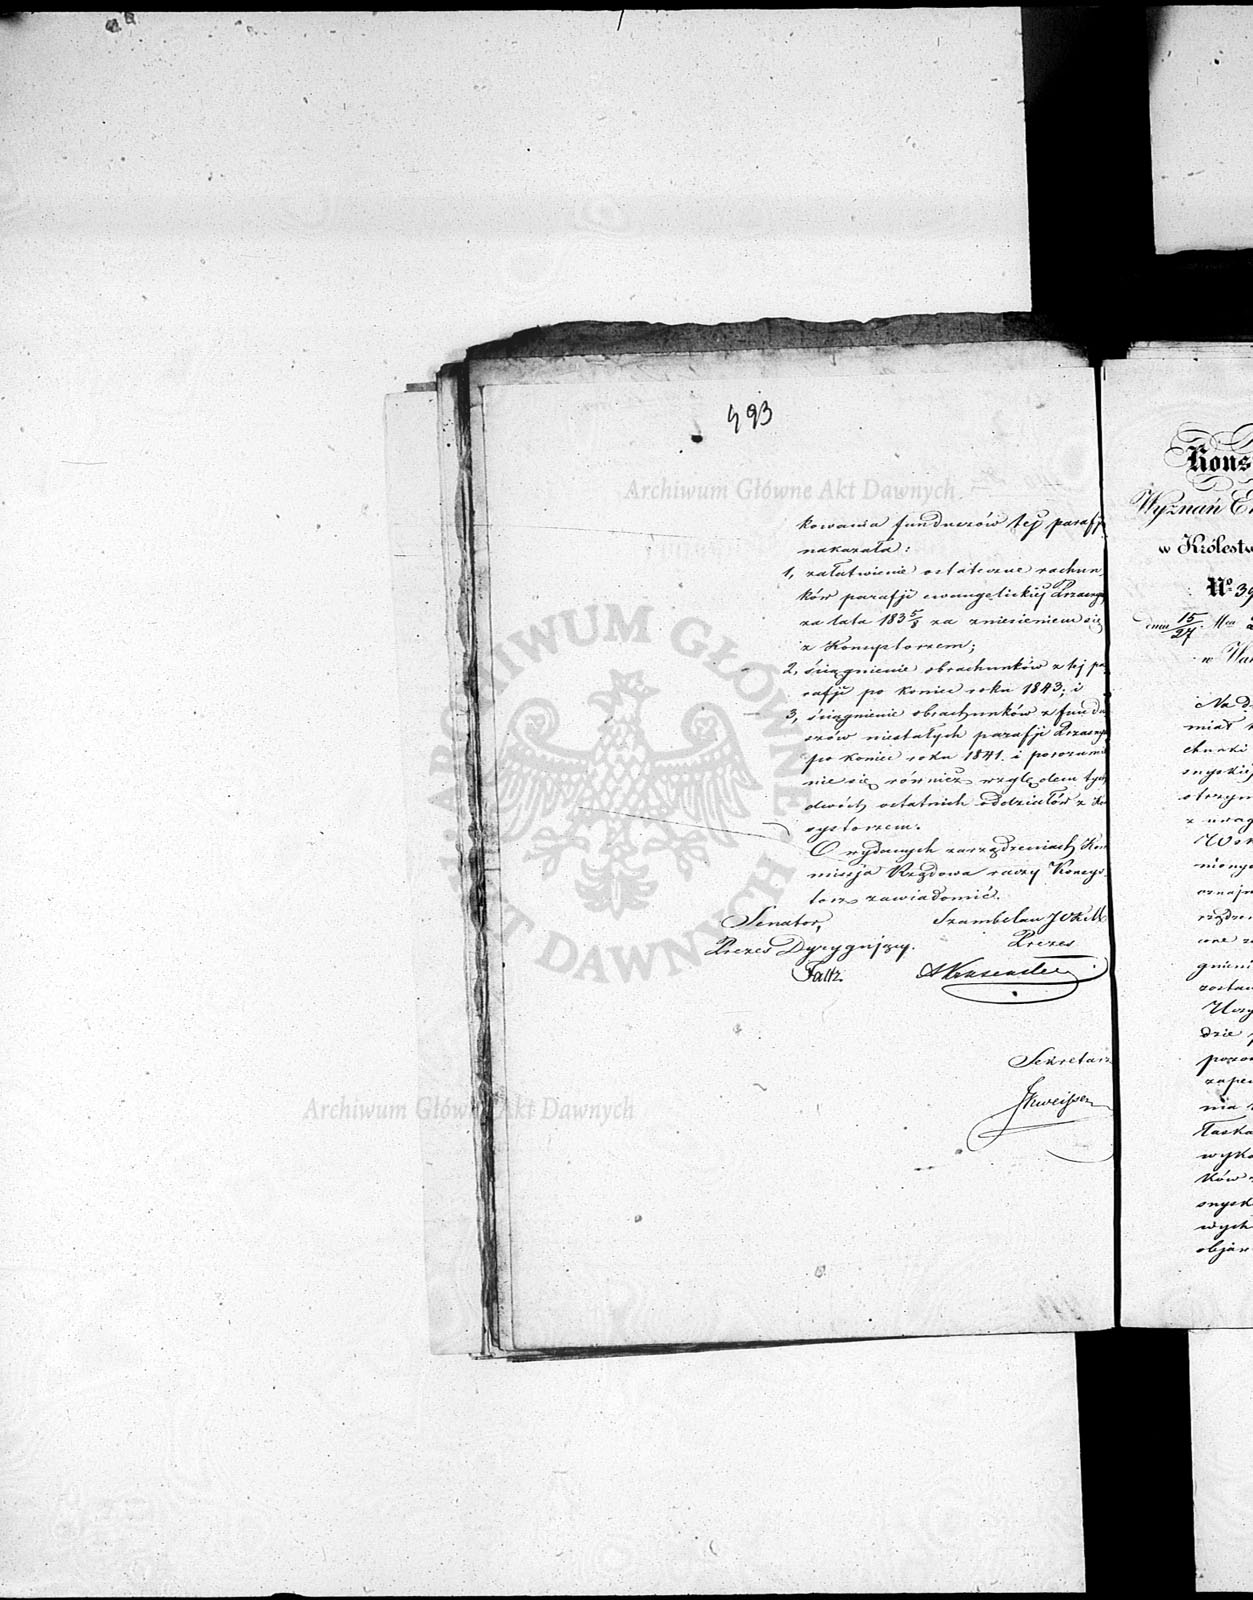 493
Archiwum Główne Akt Dawnych
kowania funduszów tej parafji
nakazała:
1, załatwienie ostateczne rachun-
ków parafji ewangelickiej Przasnys
za lata 183 5/8 za zniesieniem się
z Konsystorzem;
2, ściągnienie obrachunków z tej pa
rafji po koniec roku 1843; i
3, ściągnienie obrachunków z fundu
szów niestałych parafji Przasnys
po koniec roku 1841. i porozumie
nie się również względem tych
dwóch ostatnich oddziałów z Kon
systorzem.
O wydanych zarządzeniach Kom
missja Rządowa raczy Konsys-
torz zawiadomić.
Senator,
Prezes Dyrygujący.
Faltz.
Szambelan J C K M
Prezes
Sekretarz
ARCHIWUM GŁÓWNE AKT DAWNYCH
Archiwum Główne Akt Dawnych
Kons
Wyznań E
w Królestw
No 39
dnia 15/27
w War
Na d
miał
chunki
snyskiej
otrzym
z uwag
nionyc
oznajm
rządze
one z
gnieni
zosta
Uczy
dzie
poro
zape
nia
Łaska
wyko
ków
snysk
wych
objaś